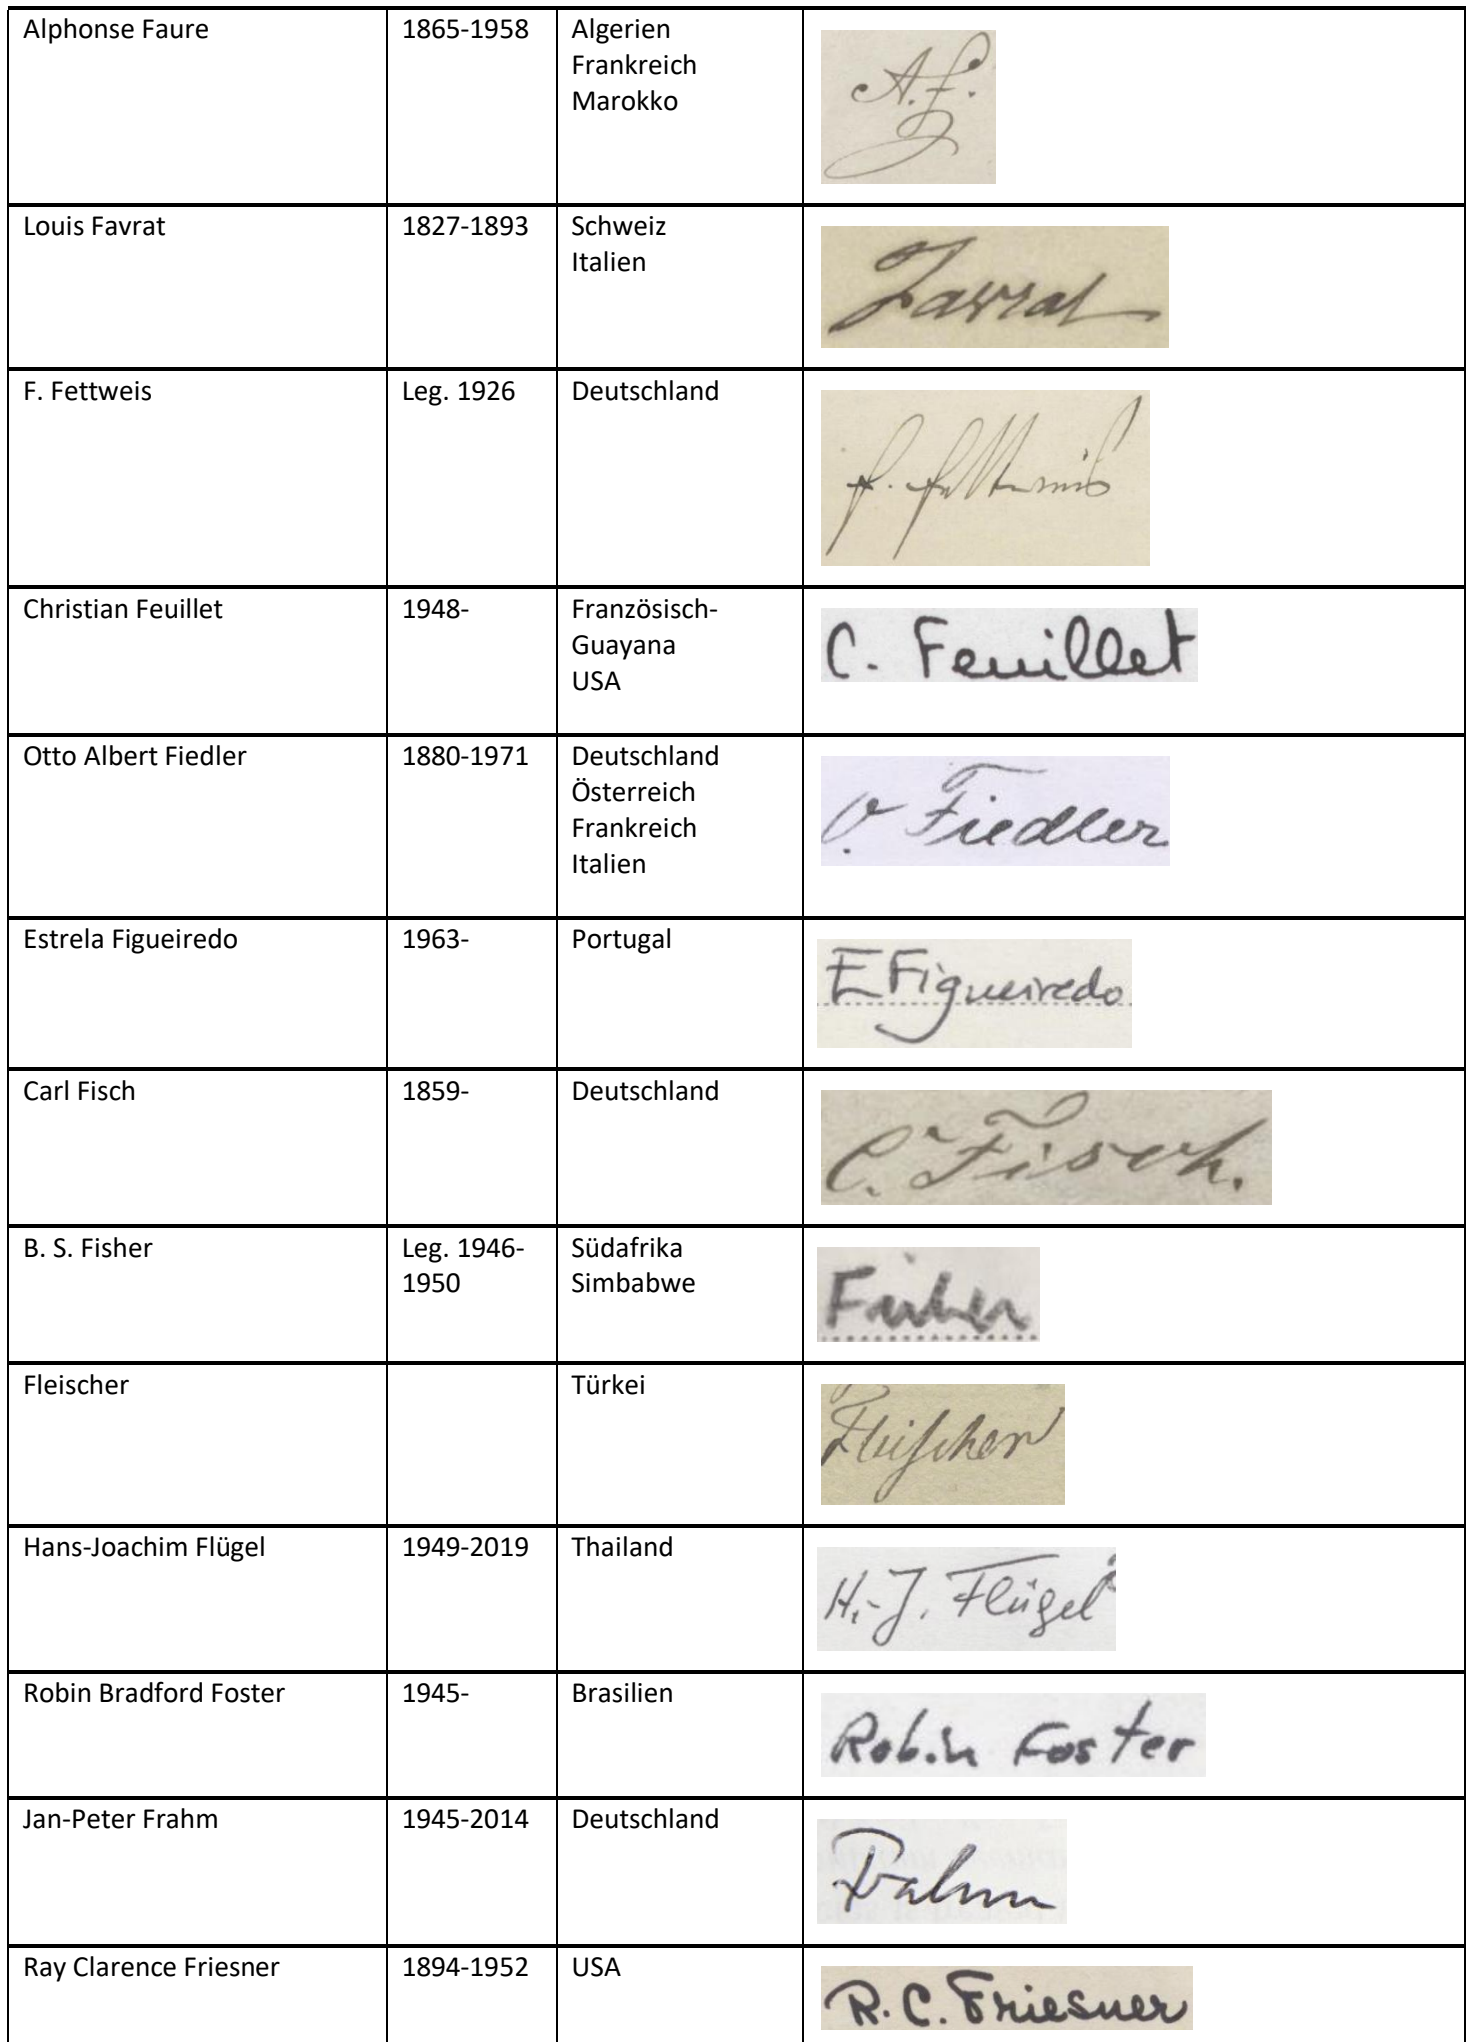 Alphonse Faure 1865-1958 Algerien
Frankreich
Marokko
A. F.
Louis Favrat 1827-1893 Schweiz
Italien
Favrat
F. Fettweis Leg. 1926 Deutschland
F. Fettweis
Christian Feuillet 1948- Französisch-
Guayana
USA
C. Feuillet
Otto Albert Fiedler 1880-1971 Deutschland
Österreich
Frankreich
Italien
O. Fiedler
Estrela Figueiredo 1963- Portugal
E Figueiredo
Carl Fisch 1859- Deutschland
C. Fisch.
B. S. Fisher Leg. 1946- Südafrika
1950 Simbabwe
Fisher
Fleischer Türkei
Fleischer
Hans-Joachim Flügel 1949-2019 Thailand
H.-J. Flügel
Robin Bradford Foster 1945- Brasilien
Robin Foster
Jan-Peter Frahm 1945-2014 Deutschland
Frahm
Ray Clarence Friesner 1894-1952 USA
R. C. Friesner